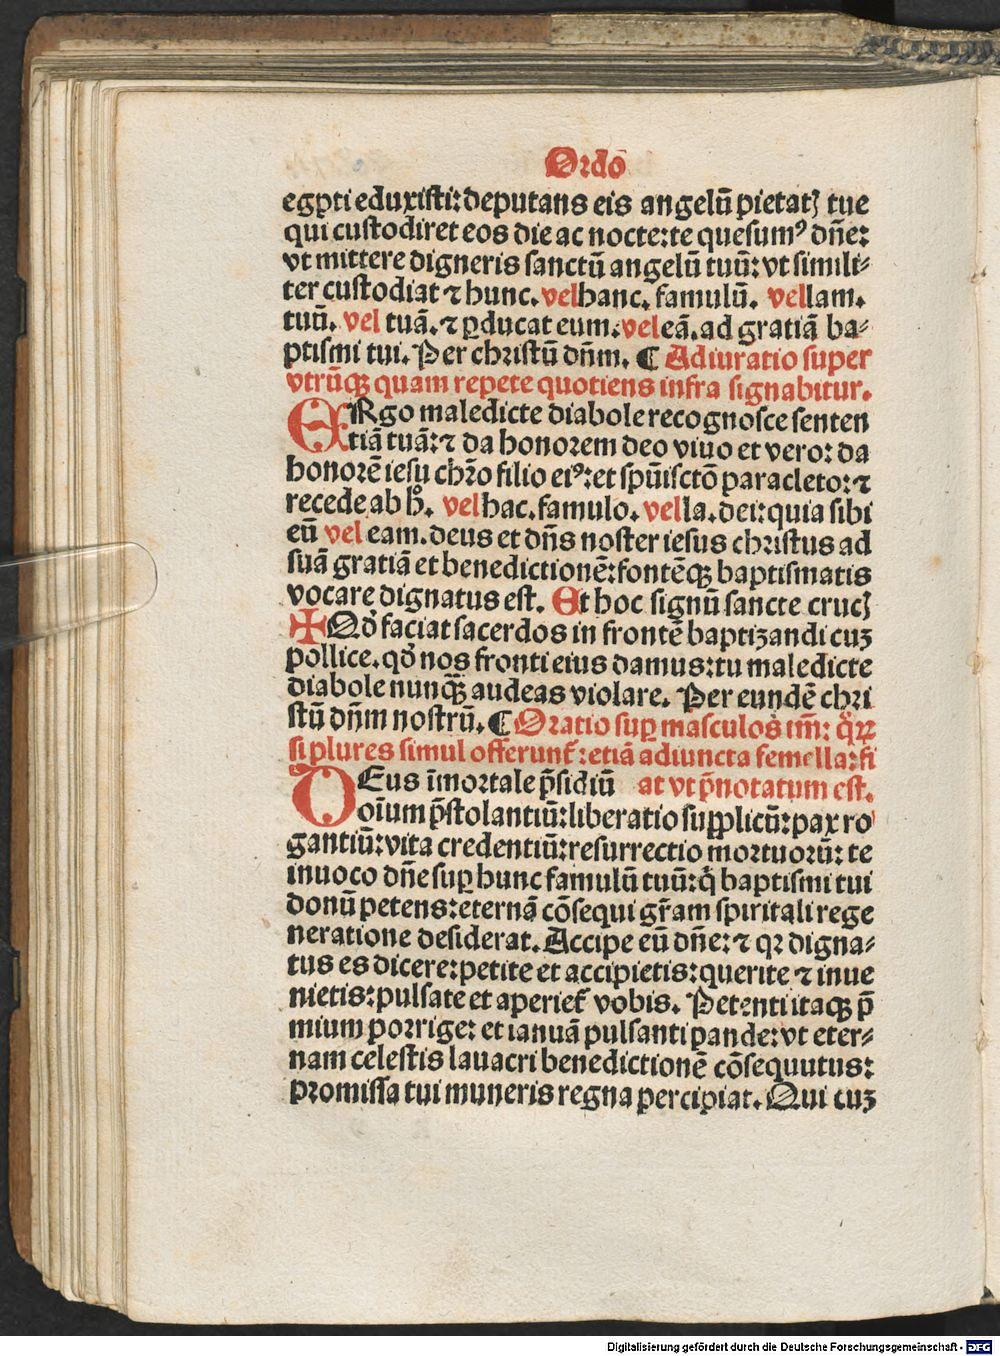 Ordo
egypti eduxisti: deputans eis angelū pietatꝭ tue
qui custodiret eos die ac nocte: te quesumꝰ dn̄e:
vt mittere digneris sanctū angelū tuū: vt simili⸗
ter custodiat ⁊ hunc. vel hanc. famulū. vel lam.
tuū. vel tuā. ⁊ ꝑducat eum. vel eā. ad gratiā ba⸗
ptismi tui. Per christū dn̄m. ¶ Adiuratio super
vtrūqꝫ quam repete quotiens infra signabitur.
ERgo maledicte diabole recognosce senten
tiā tuā: ⁊ da honorem deo viuo et vero: da
honorē iesu chr̄o filio eiꝰ: et spūiscto paracleto: ⁊
recede ab h̄. vel hac. famulo. vel la. dei: quia sibi
eū vel eam. deus et dn̄s noster iesus christus ad
suā gratiā et benedictionē: fontēqꝫ baptismatis
vocare dignatus est. Et hoc signū sancte crucꝭ
✠ Qd̛ faciat sacerdos in frontē baptizandi cuꝫ
pollice. qd̛ nos fronti eius damus: tu maledicte
diabole nunqꝫ̄ audeas violare. Per eundē chri
stū dn̄m nostrū. ¶ Oratio suꝑ masculos tm̄: qr̄
si plures simul offerunt᷑: etiā adiuncta femella: fi
DEus īmortale p̄sidiū at vt p̄notatum est.
oīum p̄stolantiū: liberatio supplicū: pax ro
gantiū: vita credentiū: resurrectio mortuorū: te
inuoco dn̄e suꝑ hunc famulū tuū: q̇ baptismi tui
donū petens: eternā cōsequi gr̄am spiritali rege
neratione desiderat. Accipe eū dn̄e: ⁊ qꝛ digna⸗
tus es dicere: petite et accipietis: querite ⁊ inue
nietis: pulsate et aperiet᷑ vobis. Petenti itaqꝫ p̄
mium porrige: et ianuā pulsanti pande: vt eter⸗
nam celestis lauacri benedictionē cōsequutus:
promissa tui muneris regna percipiat. Qui cuꝫ
Digitalisierung gefördert durch die Deutsche Forschungsgemeinschaft - DFG